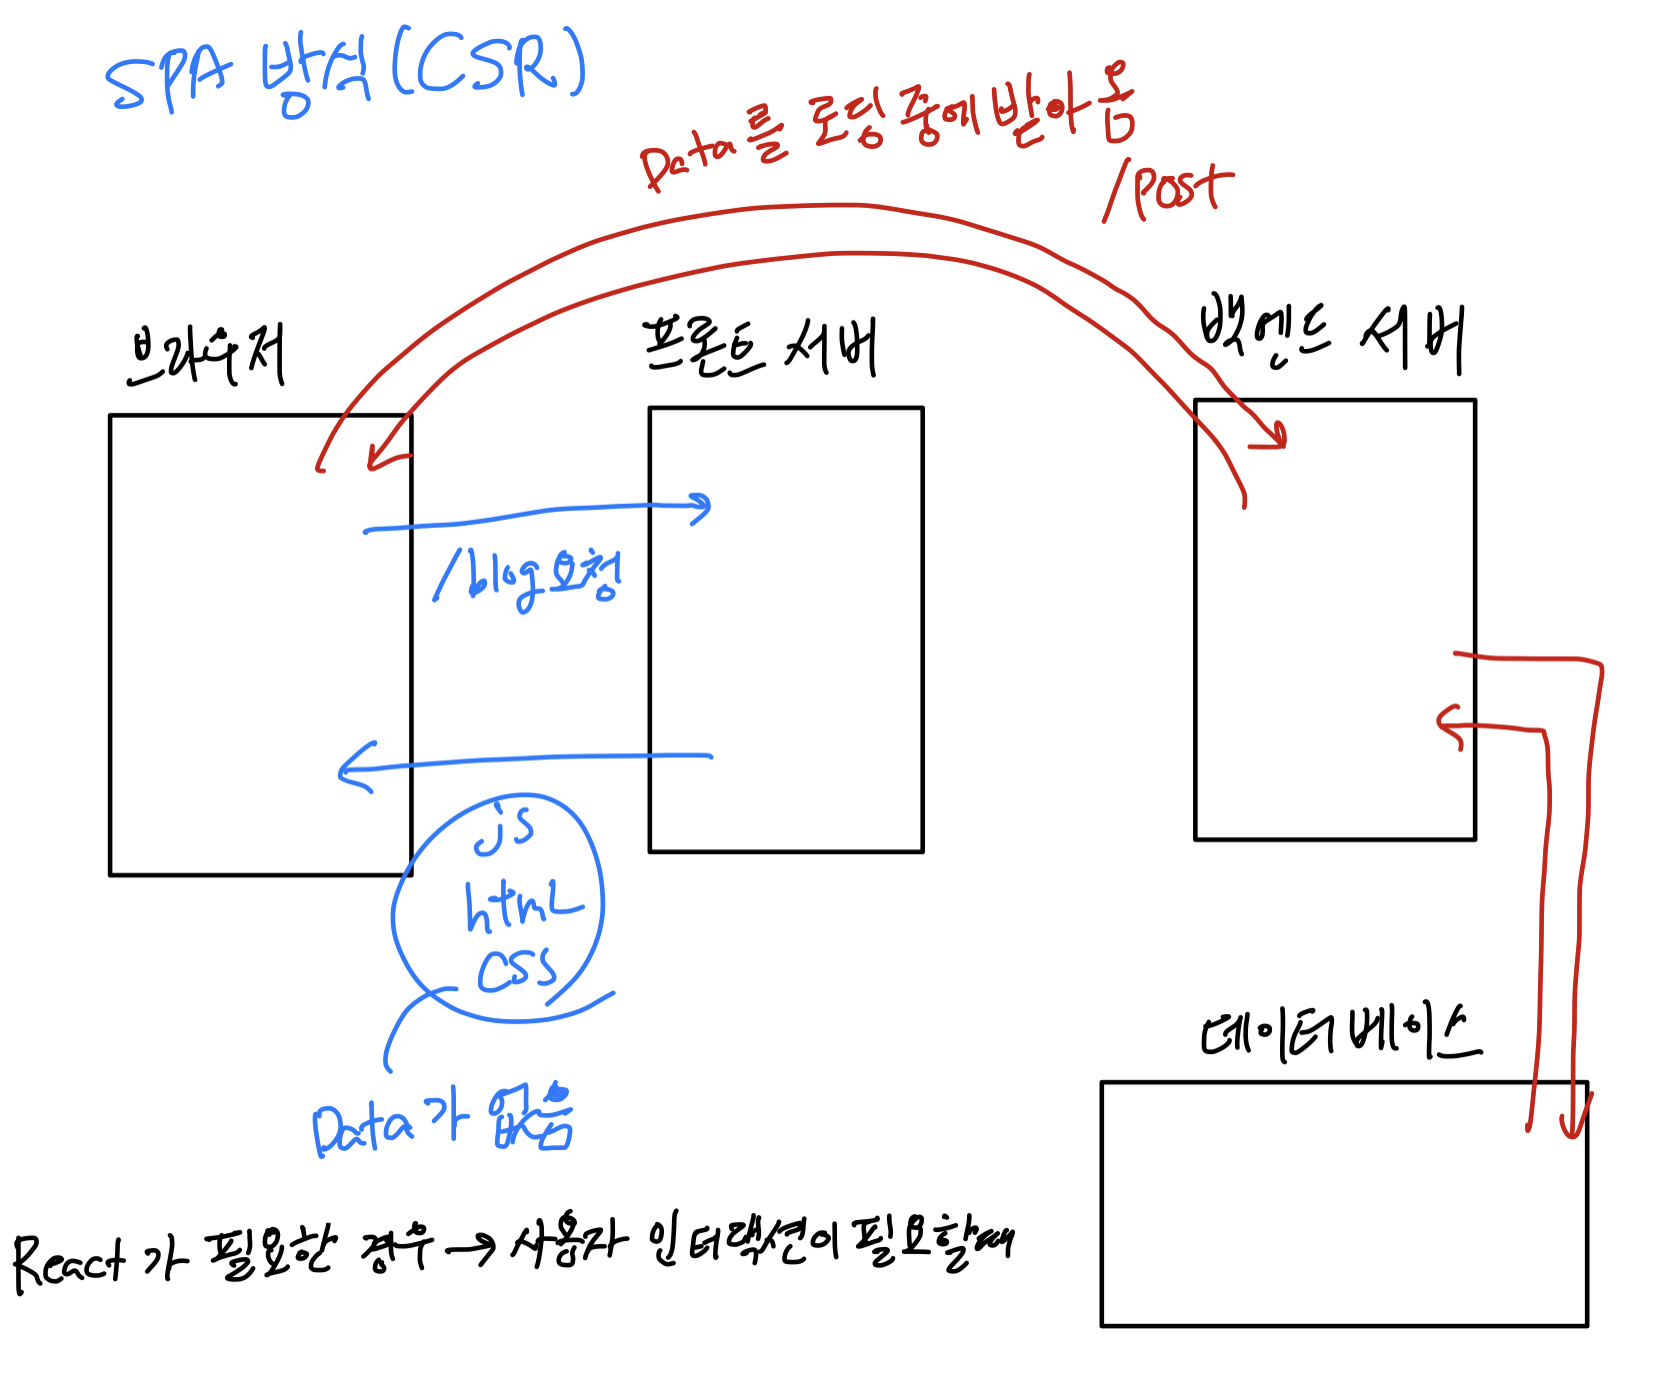 SPA 방식(CSR)
Data를 로딩 중에 받아 옴
/post
브라우저
프론트 서버
백엔드 서버
/blog요청
js
html
css
Data가 없음
데이터 베이스
React 가 필요한 경우 → 사용자 인터랙션이 필요할때